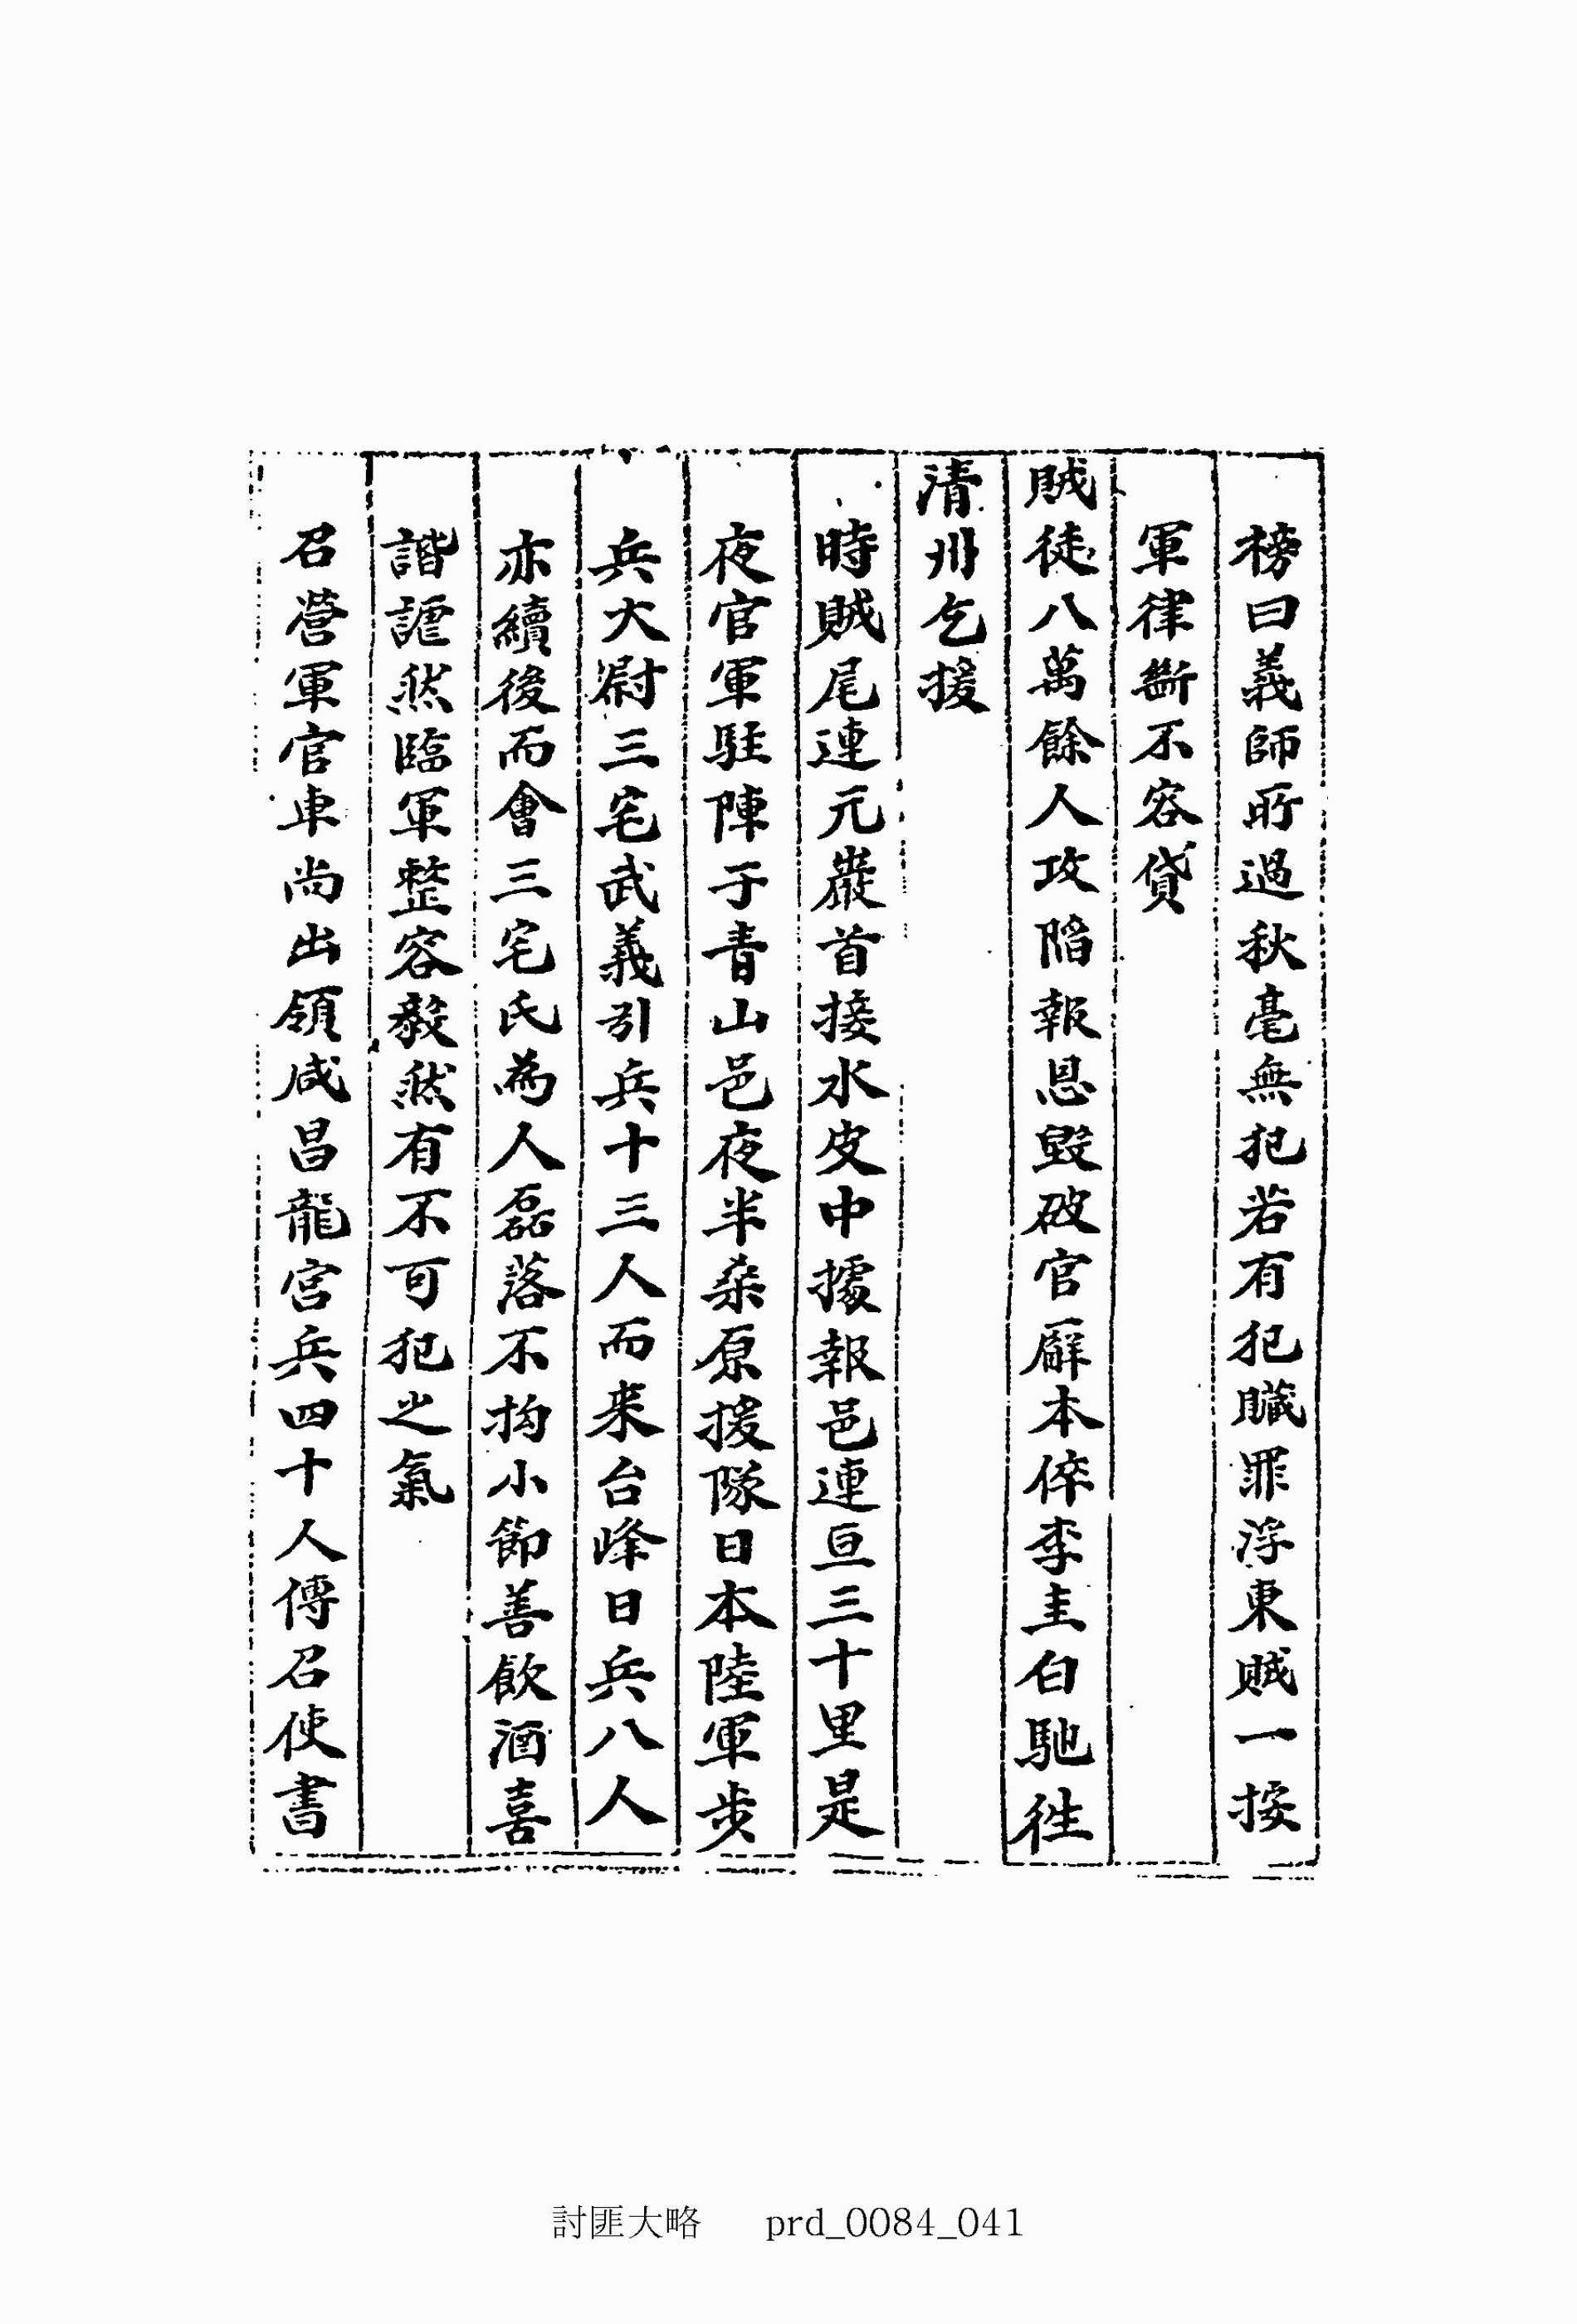 榜曰義師所過秋毫無犯若有犯贓罪浮東賊一按
軍律斷不容貸
賊徒八萬餘人攻陷報恩毀破官廨本倅李圭白馳徃
清州乞援
時賊尾連元巖首接水皮中據報邑連亘三十里是
夜官軍駐陣于靑山邑夜半桒原援隊日本陸軍步
兵大尉三宅武義引兵十三人而来台峰日兵八人
亦續後而會三宅氏為人磊落不拘小節善飮酒喜
諧謔然臨軍整容毅然有不可犯之氣
召營軍官車尚出領咸昌龍宮兵四十人傳召使書
討匪大略 prd_0084_041